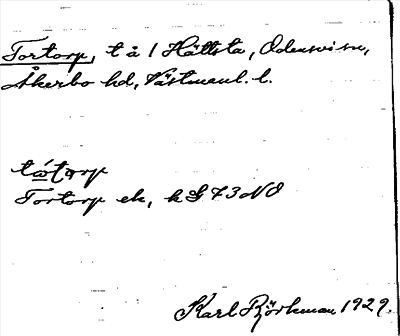 Tortorp, t å 1 Hällsta, Odensvi sn,
Åkerbo hd, Västmanl. l.
tó̲torp
Tortorp ek, k G 73 NO
Karl Björkman 1929.